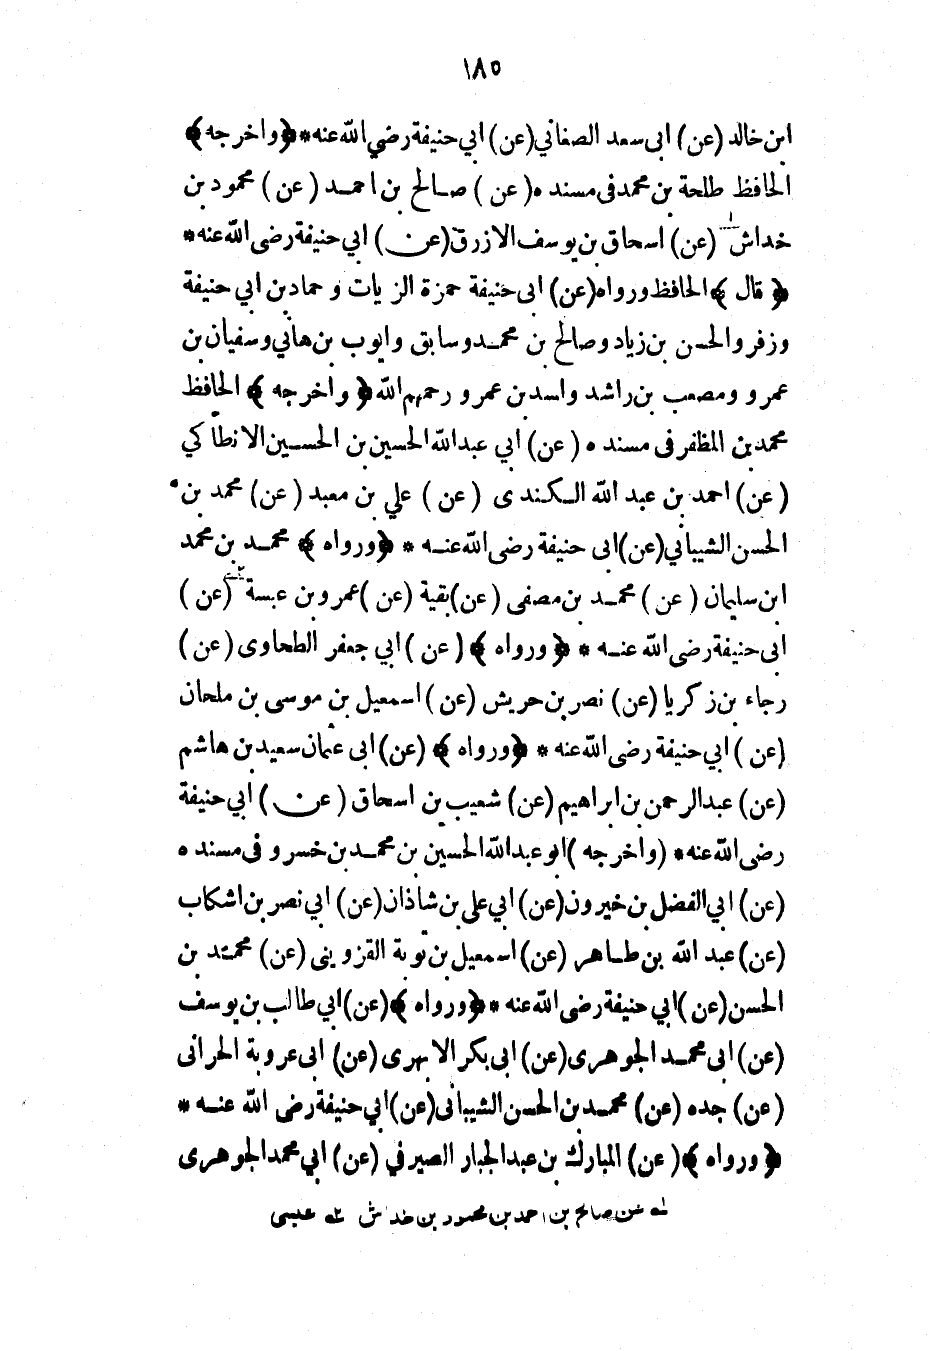 ١٨٥
ابن خالد (عن) ابى سعد الصغاني (عن) ابي حنيفة رضي الله عنه * ﴿واخرجه﴾
الحافظ طلحة بن محمد فى مسنده (عن) صالح بن احمد (عن) محمود بن
خداش (عن) اسحاق بن يوسف الازرق (عن) ابي حنيفة رضى الله عنه *
﴿قال﴾ الحافظ ورواه (عن) ابى حنيفة حمزة الزيات وحماد بن ابي حنيفة
وزفر والحسن بن زياد وصالح بن محمد وسابق وايوب بن هاني وسفيان بن
عمرو ومصعب بن راشد واسد بن عمرو رحمهم الله ﴿واخرجه﴾ الحافظ
محمد بن المظفر فى مسنده (عن) ابي عبد الله الحسين بن الحسين الانطاكي
(عن) احمد بن عبد الله الكندى (عن) علي بن معبد (عن) محمد بن
الحسن الشيباني (عن) ابى حنيفة رضى الله عنه * ﴿ورواه﴾ محمد بن محمد
ابن سليمان (عن) محمد بن مصفى (عن) بقية (عن) عمرو بن عبسة (عن)
ابى حنيفة رضى الله عنه * ﴿ورواه﴾ (عن) ابي جعفر الطحاوى (عن)
رجاء بن زكريا (عن) نصر بن حريش (عن) اسمعيل بن موسى بن ملحان
(عن) ابي حنيفة رضى الله عنه * ﴿ورواه﴾ (عن) ابى عثمان سعيد بن هاشم
(عن) عبد الرحمن بن ابراهيم (عن) شعيب بن اسحاق (عن) ابي حنيفة
رضى الله عنه * (واخرجه) ابو عبد الله الحسين بن محمد بن خسرو فى مسنده
(عن) ابي الفضل بن خيرون (عن) ابي على بن شاذان (عن) ابي نصر بن اشكاب
(عن) عبد الله بن طاهر (عن) اسمعيل بن توبة القزويني (عن) محمد بن
الحسن (عن) ابي حنيفة رضى الله عنه * ﴿ورواه﴾ (عن) ابي طالب بن يوسف
(عن) ابى محمد الجوهرى (عن) ابى بكر الابهرى (عن) ابى عروبة الحرانى
(عن) جده (عن) محمد بن الحسن الشيبانى (عن) ابي حنيفة رضى الله عنه *
﴿ورواه﴾ (عن) المبارك بن عبد الجبار الصيرفي (عن) ابي محمد الجوهرى
عن صالح بن احمد بن محمود بن خداش عيسى